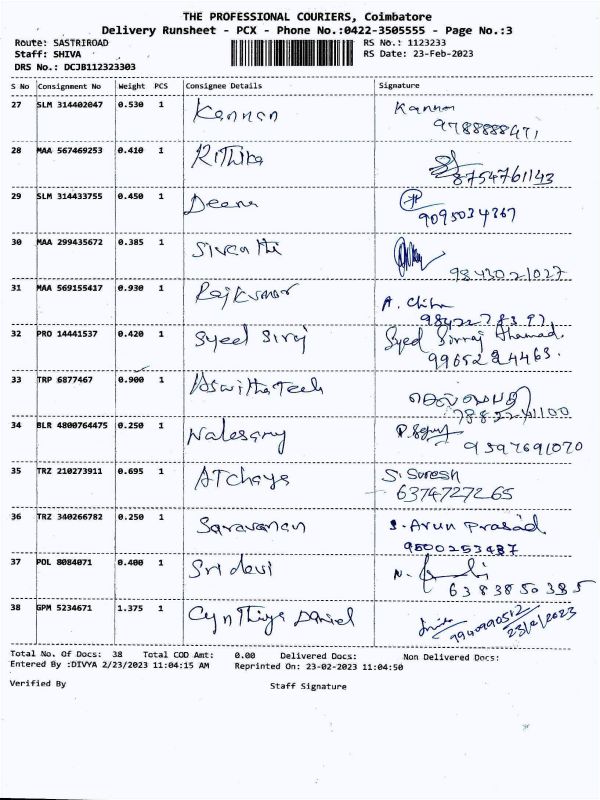 THE PROFESSIONAL COURIERS, Coimbatore
Delivery Runsheet - PCX - Phone No.:0422-3505555 - Page No.:3
Route: SASTRIROAD RS No.: 1123233
Staff: SHIVA RS Date: 23-Feb-2023
DRS No.: DCJB112323303
S No Consignment No Weight PCS Consignee Details Signature
27 SLM 314402047 0.530 1 Kannan Kannan
9788888471
28 MAA 567469253 0.410 1 Rithika
8754761143
29 SLM 314433755 0.450 1 Deena
9095034367
30 MAA 299435672 0.385 1
9843021027
31 MAA 569155417 0.930 1 Rajkumar A. Chitra
32 PRO 14441537 0.420 1 Syeed Siraj Syed Sirraj Ahamad
9965284463.
33 TRP 6877467 0.900 1
34 BLR 4800764475 0.250 1
9597691070
35 TRZ 210273911 0.695 1 ATchaya S. Suresh
6374727265
36 TRZ 340266782 0.250 1 Saravanan S. Arun Prasad
9500253487
37 POL 8084071 0.400 1 Sri devi
6383850385
38 GPM 5234671 1.375 1 Cynthiya Daniel
9940990512
23/2/2023
Total No. Of Docs: 38 Total COD Amt: 0.00 Delivered Docs: Non Delivered Docs:
Entered By :DIVYA 2/23/2023 11:04:15 AM Reprinted On: 23-02-2023 11:04:50
Verified By Staff Signature